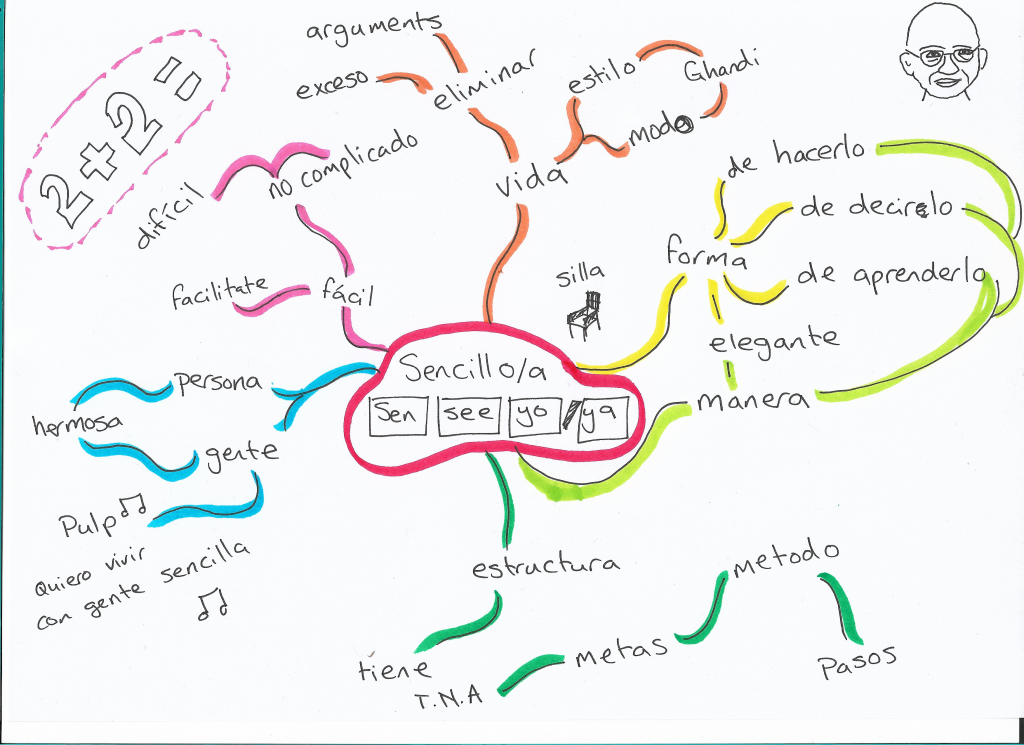 arguments
exceso
eliminar
estilo
Ghandi
moda
vida
2+2=
difícil
no complicado
facilitate
fácil
de hacerlo
de decirlo
de aprenderlo
forma
elegante
manera
silla
Sencillo/a
Sen see yo / ya
persona
hermosa
gente
Pulp
Quiero vivir
con gente sencilla
estructura
tiene
T.N.A
metas
metodo
Pasos